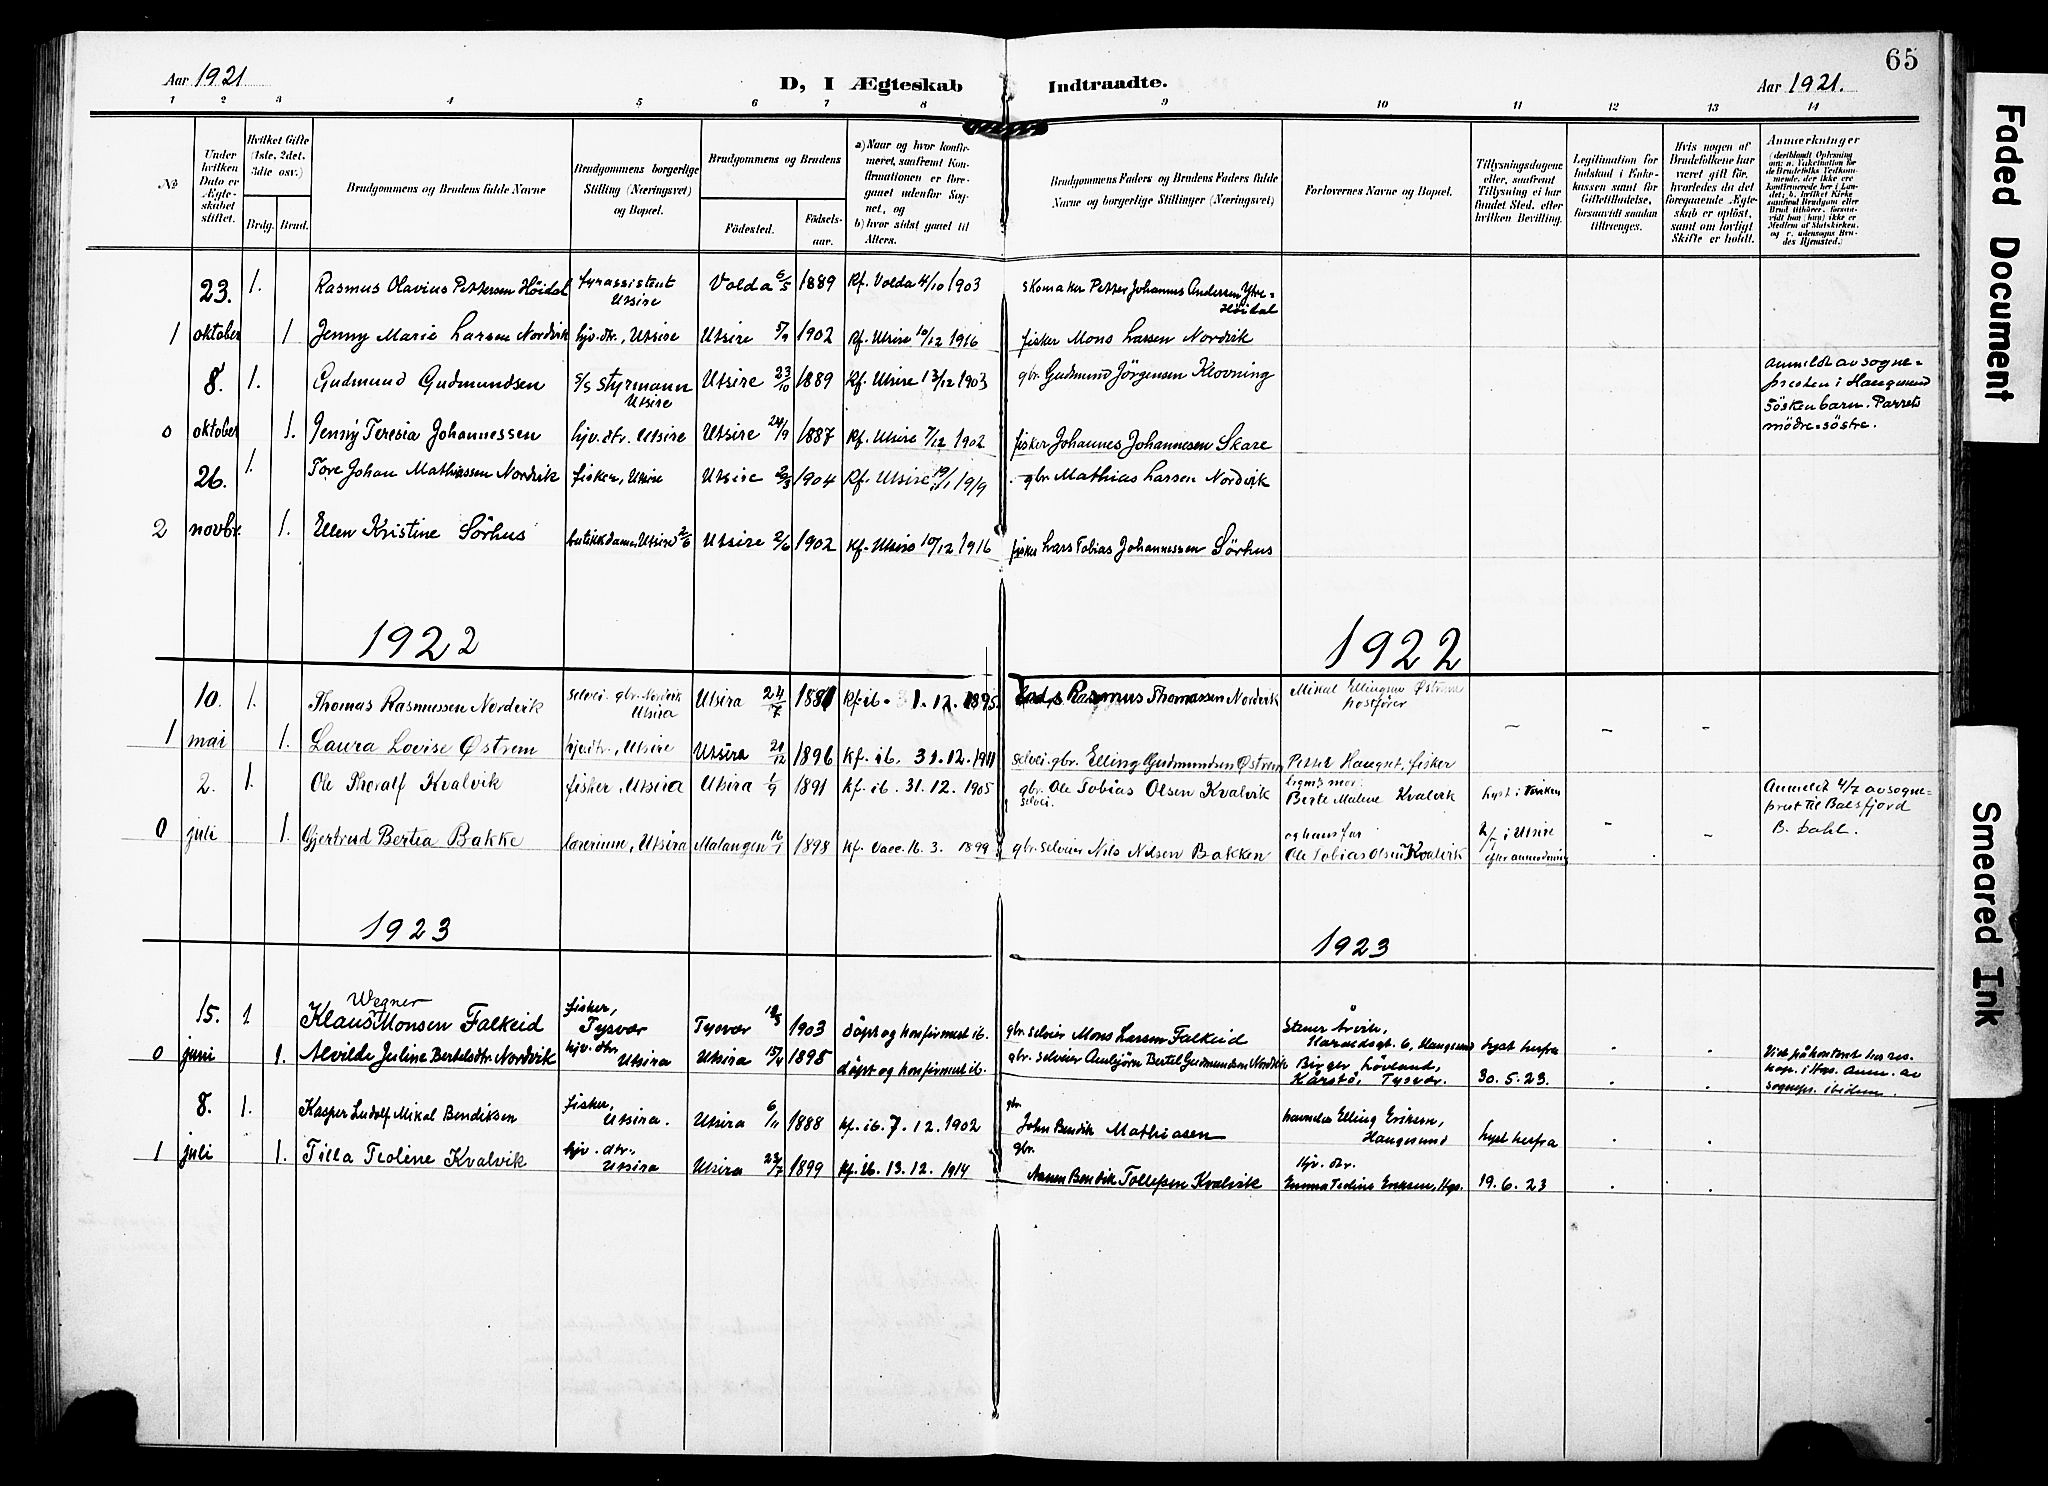 65
Aar 1921
D, I Ægteskab Indtraadte.
Aar 1921.
1 2 3 4 5 6 7 8 9 10 11 12 13 14
No
Under hvilken Dato er Ægteskabet stiftet.
Hvilket Gifte (1ste, 2det, 3die osv.)
Brdg. Brud.
Brudgommens og Brudens fulde Navne
Brudgommens borgerlige Stilling (Næringsvei) og Bopæl.
Brudgommens og Brudens
Födested. Födsels-aar.
a) Naar og hvor konfirmeret, saafremt Konfirmationen er foregaaet udenfor Sognet, og
b) hvor sidst gaaet til Alters.
Brudgommens Faders og Brudens Faders fulde Navne og borgerlige Stillinger (Næringsvei)
Forlovernes Navne og Bopæl.
Tillysningsdagene eller, saafremt Tillysning ei har fundet Sted, efter hvilken Bevilling.
Legitimation for Indskud i Enkekassen samt for Giftetilladelse, forsaavidt saadan tiltrænges.
Hvis nogen af Brudefolkene har været gift för, hvorledes da det foregaaende Ægteskab er oplöst, samt om lovligt Skifte er holdt.
Anmerkninger
23. 1. Rasmus Olavius Pettersen Höidal fyrassistent Utsire Volda 6/5 1889 Kf. Volda 4/10 1903 skomaker Petter Johannes Andersen Ytre-Höidal
1 oktober 1 Jenny Marie Larsen Nordvik hjv. dtr., Utsire Utsire 5/9 1902 Kf. Utsire 10/12 1916 fisker Mons Larsen Nordvik
8. 1. Gudmund Gudmundsen S/S styrmann Utsire Utsire 23/10 1889 Kf. Utsire 13/12 1903 gbr. Gudmund Jörgensen Klovning
anmeldt av sogne-
presten i Haugesund
Söskenbarn. Parrets
mödre söstre.
0 oktober 1. Jenny Teresia Johannessen hjv. dtr. Utsire Utsire 24/9 1887 Kf. Utsire 7/12 1902 fisker Johannes Johannesen Skare
26. 1. Tore Johan Mathiassen Nordvik fisker, Utsire Utsire 1904 Kf. Utsire 1919 gbr. Mathias Larsen Nordvik
2 novbr. 1. Ellen Kristine Sörhus butikkdame, Utsire 2/6 Utsire 2/6 1902 Kf. Utsire 10/12 1916 fisker Lars Tobias Johannessen Sörhus
1922 1922
10. 1. Thomas Rasmussen Nordvik selvei. gbr. Nordvik Utsira Utsira 24/7 1881 Kf. ib. 1. 12. 1895. Rasmus Thomassen Nordvik Mikal Ellingsen Østrem
1 mai 1. Laura Lovise Østrem hjv. dtr., Utsire Utsira 1896 kf. ib. 31. 12. 1911 selvei. gbr. Elling Gudmundsen Østrem fisker – – –
2. 1. Ole Thoralf Kvalvik fisker, Utsira Utsira 1/9 1891 kf. ib. 31. 12. 1905 gbr. selvei. Ole Tobias Olsen Kvalvik Berte Malene Kvalvik lyst i
Anmeldt 4/7 av sogne-
prest til Balsfjord
B. Dahl.
0 juli 1. Gjertrud Bertea Bakke lærerinne, Utsira Malangen 1898 kf. vacc. 16. 3. 1899 gbr. selveier Nils Nilsen Bakken og hans far Ole Tobias Olsen Kvalvik i Utsire efter anmodning
1923 1923
15. 1 Klaus Wegner Monsen Falkeid fisker, Tysvær Tysvær 1903 döpt og konfirmert ib. gbr. selveier Mons Larsen Falkeid Haraldsgt. 6, Haugesund lyst herfra
0 juni 1. Alvilde Juline Bertelsdtr. Nordvik hjv. dtr. Utsira Utsira 15/4 1895 döpt og konfirmert ib. gbr. selveier Bertel Gudmundsen Nordvik Birger Lövland, Kårstö, Tysvær. 30. 5. 23.
8. 1. Kasper Ludolf Mikal Bendiksen fisker, Utsira. Utsira 6/11 1888 kf. ib. 7. 12. 1902 gbr. John Bendik Mathiasen Elling Eriksen, Haugesund lyst herfra
1 juli 1. Tilla Teoline Kvalvik hjv. dtr. Utsira Utsira 23/7 1899 kf. ib. 13. 12. 1914 gbr. Bendik Tollefsen Kvalvik hjv. dtr. Emma Teoline Eriksen, Hgs. 19. 6. 23
Faded Document
Smeared Ink